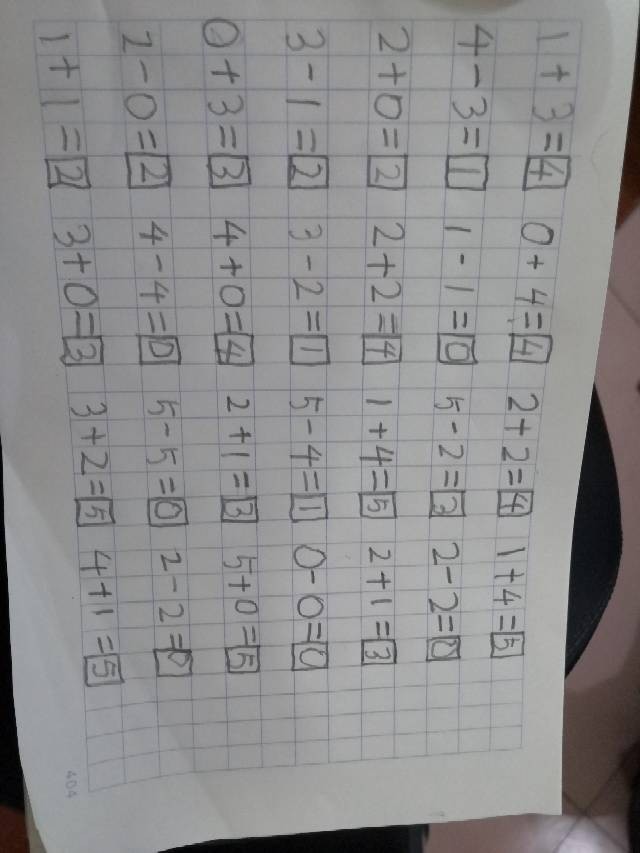 1 + 3 = 4 0 + 4 = 4 2 + 2 = 4 1 + 4 = 5
4 - 3 = 1 1 - 1 = 0 5 - 2 = 3 2 - 2 = 0
2 + 0 = 2 2 + 2 = 4 1 + 4 = 5 2 + 1 = 3
3 - 1 = 2 3 - 2 = 1 5 - 4 = 1 0 - 0 = 0
0 + 3 = 3 4 + 0 = 4 2 + 1 = 3 5 + 0 = 5
2 - 0 = 2 4 - 4 = 0 5 - 5 = 0 2 - 2 = 0
1 + 1 = 2 3 + 0 = 3 3 + 2 = 5 4 + 1 = 5
404